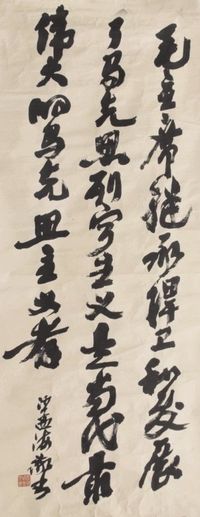 毛主席继承捍卫和发展
了马克思列宁主义是当代最
偉大的马克思主义者
沙孟海敬书